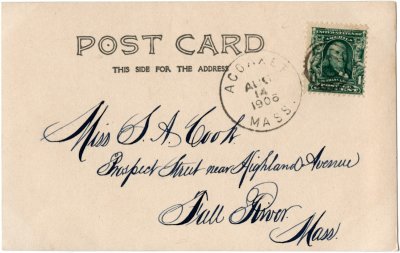 POST CARD
THIS SIDE FOR THE ADDRESS
ACOAXET
AUG
14
1906
MASS.
Miss S. A. Cook.
Prospect Street near Highland Avenue
Fall River.
Mass.